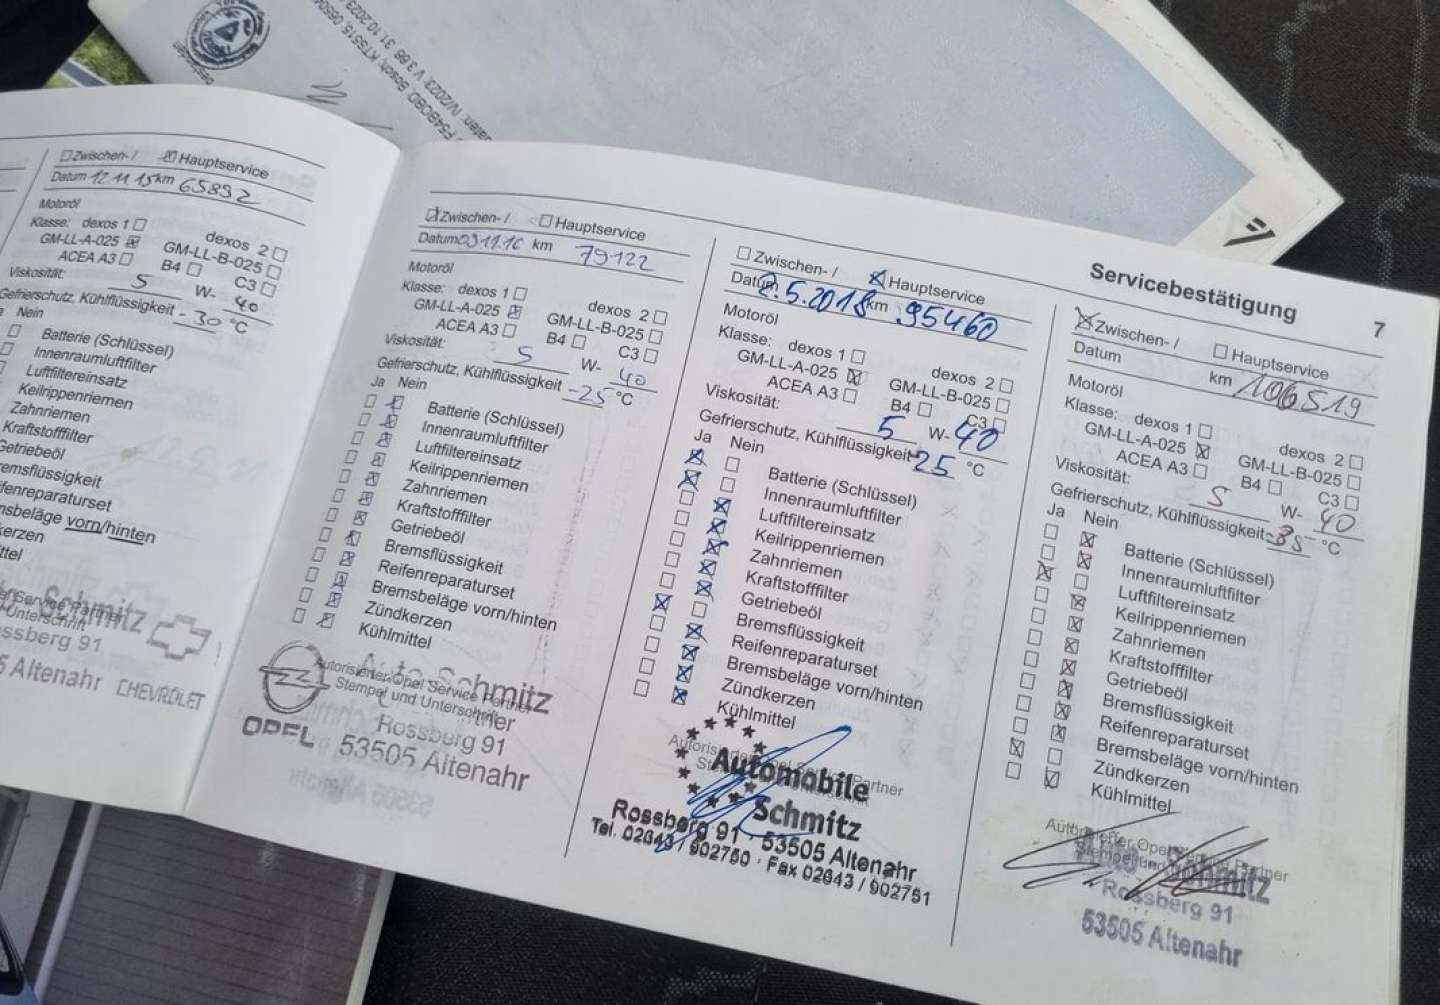 F5ABOBD. Bosch, KTS515, 0650
Daten: IV/2023. V 3.66 31.10.2023
Zwischen- / Hauptservice
Datum 12.11.15 km 65892
Motoröl
Klasse: dexos 1 dexos 2
GM-LL-A-025 GM-LL-B-025
ACEA A3 B4 C3
Viskosität: 5 W- 40
Gefrierschutz, Kühlflüssigkeit -30 °C
Nein
Batterie (Schlüssel)
Innenraumluftfilter
Luftfiltereinsatz
Keilrippenriemen
Zahnriemen
Kraftstofffilter
Getriebeöl
emsflüssigkeit
ifenreparaturset
nsbeläge vorn/hinten
kerzen
ittel
Schmitz
Rossberg 91
5 Altenahr CHEVROLET
Zwischen- / Hauptservice
Datum 09.11.16 km 79122
Motoröl
Klasse: dexos 1 dexos 2
GM-LL-A-025 GM-LL-B-025
ACEA A3 B4 C3
Viskosität: 5 W- 40
Gefrierschutz, Kühlflüssigkeit -25 °C
Ja Nein
Batterie (Schlüssel)
Innenraumluftfilter
Luftfiltereinsatz
Keilrippenriemen
Zahnriemen
Kraftstofffilter
Getriebeöl
Bremsflüssigkeit
Reifenreparaturset
Bremsbeläge vorn/hinten
Zündkerzen
Kühlmittel
Autorisierter Opel Service Partner
Stempel und Unterschrift
Auto Schmitz
Rossberg 91
OPEL 53505 Altenahr
Zwischen- / Hauptservice
Datum 2.5.2018 km 95460
Motoröl
Klasse: dexos 1 dexos 2
GM-LL-A-025 GM-LL-B-025
ACEA A3 B4 C3
Viskosität: 5 W- 40
Gefrierschutz, Kühlflüssigkeit -25 °C
Ja Nein
Batterie (Schlüssel)
Innenraumluftfilter
Luftfiltereinsatz
Keilrippenriemen
Zahnriemen
Kraftstofffilter
Getriebeöl
Bremsflüssigkeit
Reifenreparaturset
Bremsbeläge vorn/hinten
Zündkerzen
Kühlmittel
Autorisierter Opel Service Partner
Automobile
Schmitz
Rossberg 91 · 53505 Altenahr
Tel. 02643 / 902750 · Fax 02643 / 902751
Servicebestätigung 7
Zwischen- / Hauptservice
Datum km 106519
Motoröl
Klasse: dexos 1 dexos 2
GM-LL-A-025 GM-LL-B-025
ACEA A3 B4 C3
Viskosität: 5 W- 40
Gefrierschutz, Kühlflüssigkeit -35 °C
Ja Nein
Batterie (Schlüssel)
Innenraumluftfilter
Luftfiltereinsatz
Keilrippenriemen
Zahnriemen
Kraftstofffilter
Getriebeöl
Bremsflüssigkeit
Reifenreparaturset
Bremsbeläge vorn/hinten
Zündkerzen
Kühlmittel
Autorisierter Opel Service Partner
Schmitz
Rossberg 91
53505 Altenahr